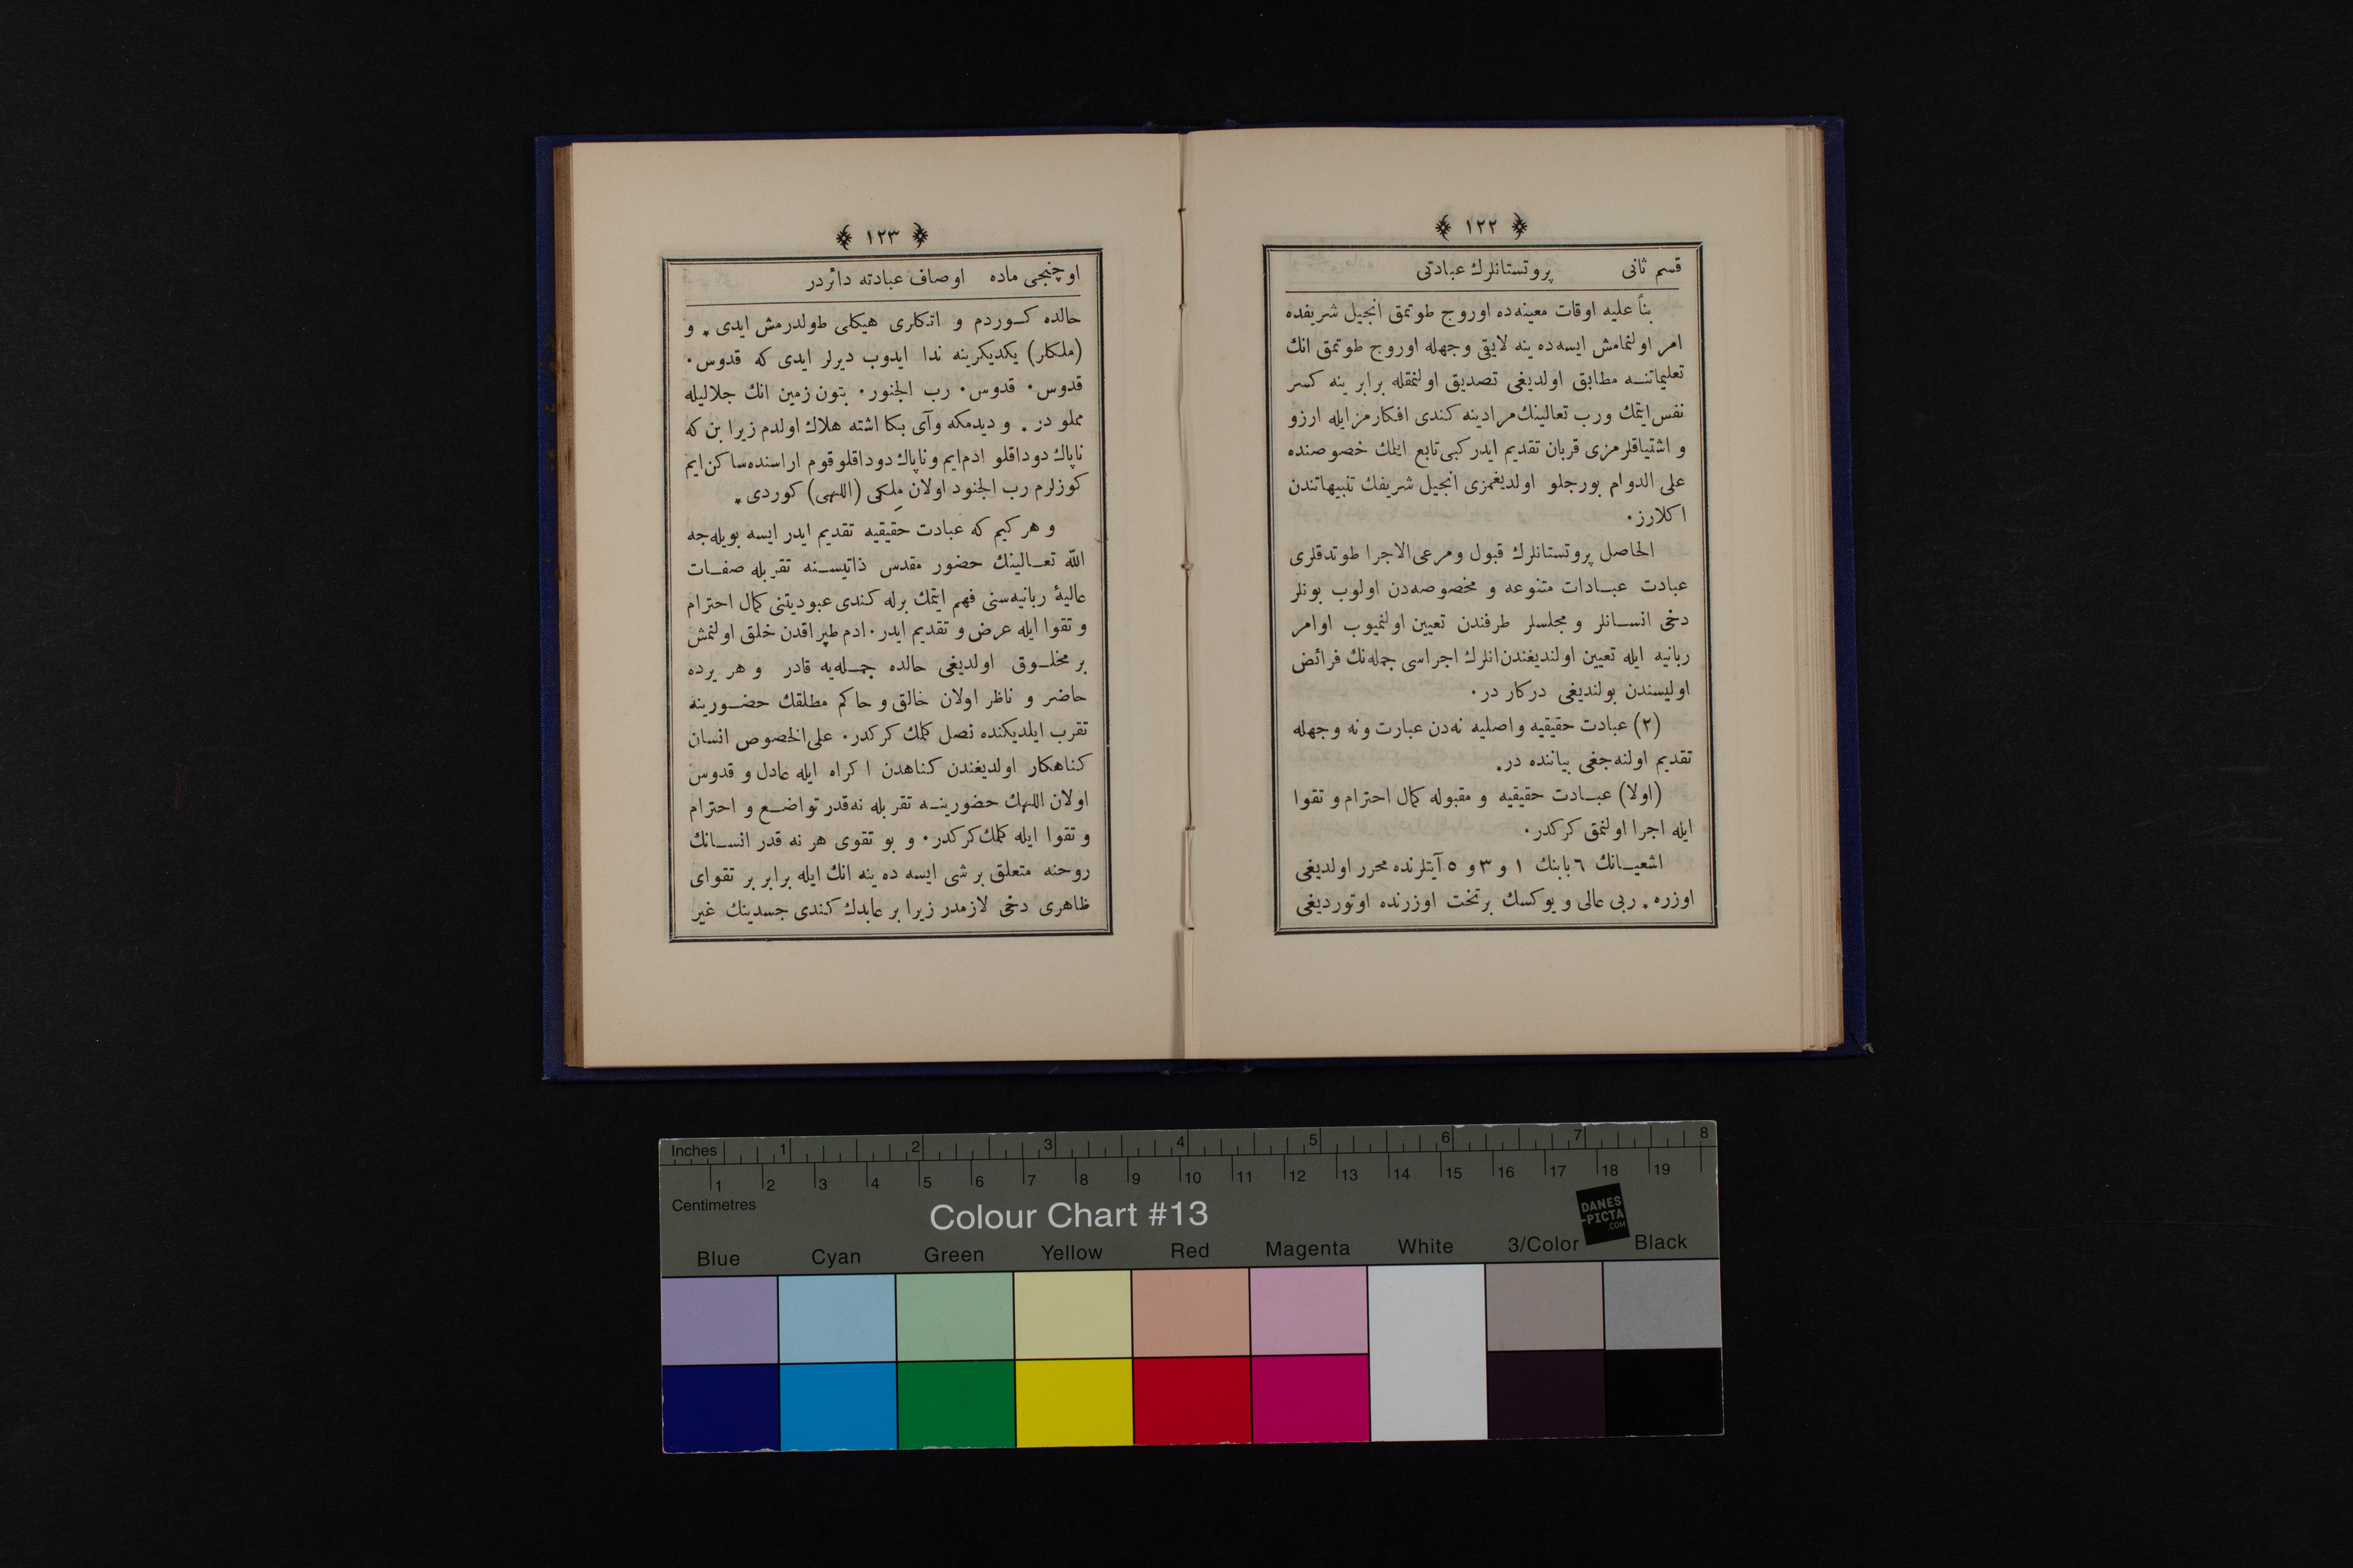 ﴿ ١٢٢ ﴾
قسم ثانی پروتستانلرك عبادتی
بنأ علیه اوقات معینه‌ده اوروج طوتمق انجیل شریفده
امر اولنمامش ایسه‌ده ینه لایقی وجهله اوروج طوتمق انك
تعلیماتنه مطابق اولدیغی تصدیق اولنمقله برابر ینه كسر
نفس ایتمك ورب تعالینك مرادینه كندی افكارمز ایله ارزو
و اشتیاقلرمزی قربان تقدیم ایدر كبی تابع ایتمك خصوصنده
علی الدوام بورجلو اولدیغمزی انجیل شریفك تنبیهاتندن
اكلارز٠
الحاصل پروتستانلرك قبول ومرعی‌الاجرا طوتدقلری
عبادت عبادات متنوعه و مخصوصه‌دن اولوب بونلر
دخی انسانلر و مجلسلر طرفندن تعیین اولنمیوب اوامر
ربانیه ایله تعیین اولندیغندن انلرك اجراسی جمله‌نك فرائض
اولیسندن بولندیغی دركار در٠
(٢) عبادت حقیقیه واصلیه نه‌دن عبارت ونه وجهله
تقدیم اولنه‌جغی بیاننده در٭
(اولا) عبادت حقیقیه و مقبوله كمال احترام و تقوا
ایله اجرا اولنمق كركدر٠
اشعیانك ٦ بابنك ١ و ٣ و ٥ آیتلرنده محرر اولدیغی
اوزره ٭ ربی عالی و یوكسك برتخت اوزرنده اوتوردیغی
﴿ ١٢٣ ﴾
اوچنجی ماده اوصاف عبادته دائردر
حالده كوردم و اتكلری هیكلی طولدرمش ایدی ٭ و
(ملكلر) یكدیكرینه ندا ایدوب دیرلر ایدی كه قدوس٠
قدوس٠ قدوس٠ رب الجنور٠ بتون زمین انك جلالیله
مملو در ٭ و دیدمكه وآی بكا اشته هلاك اولدم زیرا بن كه
ناپاك دوداقلو ادم‌ایم وناپاك دوداقلو قوم اراسنده ساكن‌ایم
كوزلرم رب الجنود اولان مِلكی (اللهی) كوردی ٭
و هر كیم كه عبادت حقیقیه تقدیم ایدر ایسه بویله‌جه
الله تعالینك حضور مقدس ذاتیسنه تقربله صفات
عالیهٔ ربانیه‌سنی فهم ایتمك برله كندی عبودیتنی كمال احترام
و تقوا ایله عرض و تقدیم ایدر٠ ادم طپراقدن خلق اولنمش
بر مخلوق اولدیغی حالده جمله‌یه قادر و هر یرده
حاضر و ناظر اولان خالق و حاكم مطلقك حضورینه
تقرب ایلدیكنده نصل كلمك كركدر٠ علی‌الخصوص انسان
كناهكار اولدیغندن كناهدن اكراه ایله عادل و قدوس
اولان اللهك حضورینه تقربله نه‌قدر تواضع و احترام
و تقوا ایله كلمك كركدر٠ و بو تقوی هر نه قدر انسانك
روحنه متعلق بر شی ایسه ده ینه انك ایله برابر بر تقوای
ظاهری دخی لازمدر زیرا بر عابدك كندی جسدینك غیر
Inches 1 2 3 4 5 6 7 8
1 2 3 4 5 6 7 8 9 10 11 12 13 14 15 16 17 18 19
Centimetres
Colour Chart #13
DANES
-PICTA
.COM
Blue Cyan Green Yellow Red Magenta White 3/Color Black